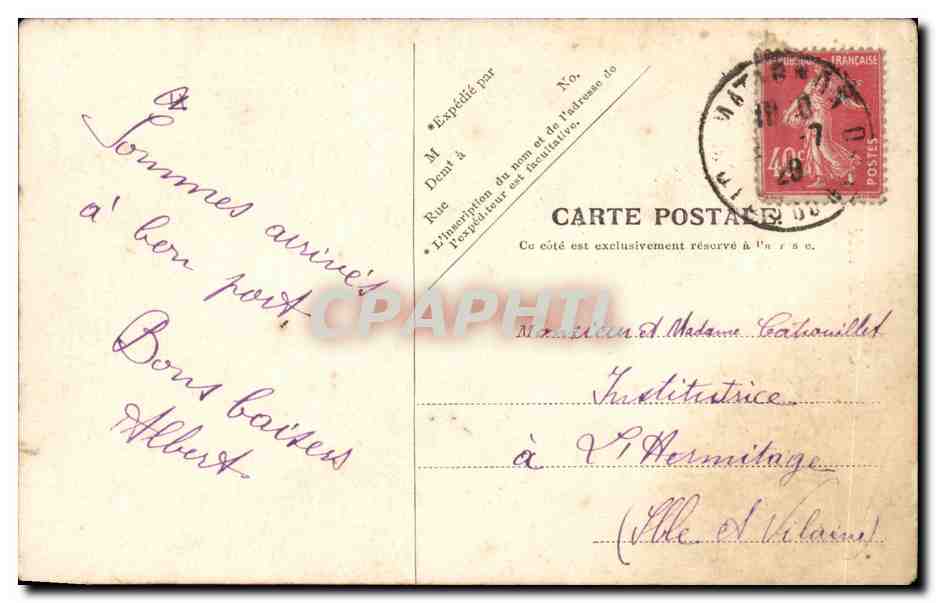 Sommes arrivés
à bon port
Bons baisers
Albert
*Expédié par
M No.
Demt à
Rue
* L'inscription du nom et de l'adresse de
l'expéditeur est facultative.
RÉPUBLIQUE FRANÇAISE
40c
POSTES
CARTE POSTALE
Ce côté est exclusivement réservé à l'a
CPAPHIL
Monsieur et Madame Cahouillet
Institutrice
à L'Hermitage
(Ille et Vilaine)